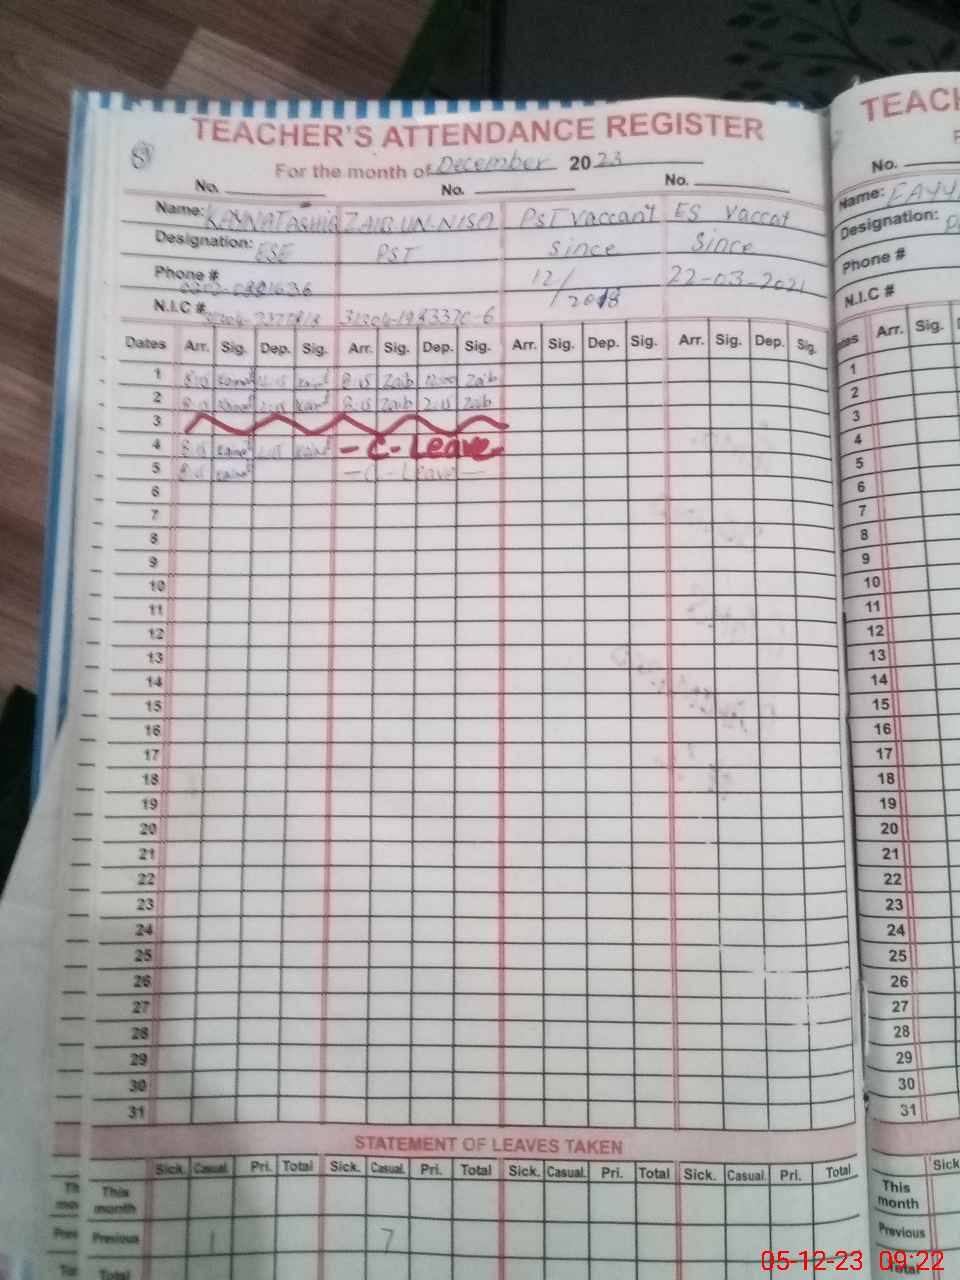 TEACHER'S ATTENDANCE REGISTER
8
For the month of December 2023
No. No. No.
Name: ZAIB UN NISA PST Vaccant ES Vaccat
Designation: ESE PST Since Since
Phone # 12/2018 22-03-2021
N.I.C #
Dates Arr. Sig. Dep. Sig. Arr. Sig. Dep. Sig. Arr. Sig. Dep. Sig. Arr. Sig. Dep. Sig.
1 8:15 8:15 Zaib Zaib
2 8:15 8:15 Zaib 2:15 Zaib
3
4 8:15 - C - Leave -
5 8:15 - C - Leave -
6
7
8
9
10
11
12
13
14
15
16
17
18
19
20
21
22
23
24
25
26
27
28
29
30
31
STATEMENT OF LEAVES TAKEN
Sick. Casual. Pri. Total Sick. Casual. Pri. Total Sick. Casual. Pri. Total Sick. Casual. Pri. Total
This month
Previous 1 7
Total
TEACH
No.
Name: FAYY
Designation:
Phone #
N.I.C #
Arr. Sig.
1
2
3
4
5
6
7
8
9
10
11
12
13
14
15
16
17
18
19
20
21
22
23
24
25
26
27
28
29
30
31
Sick
This month
Previous
Total
05-12-23 09:22